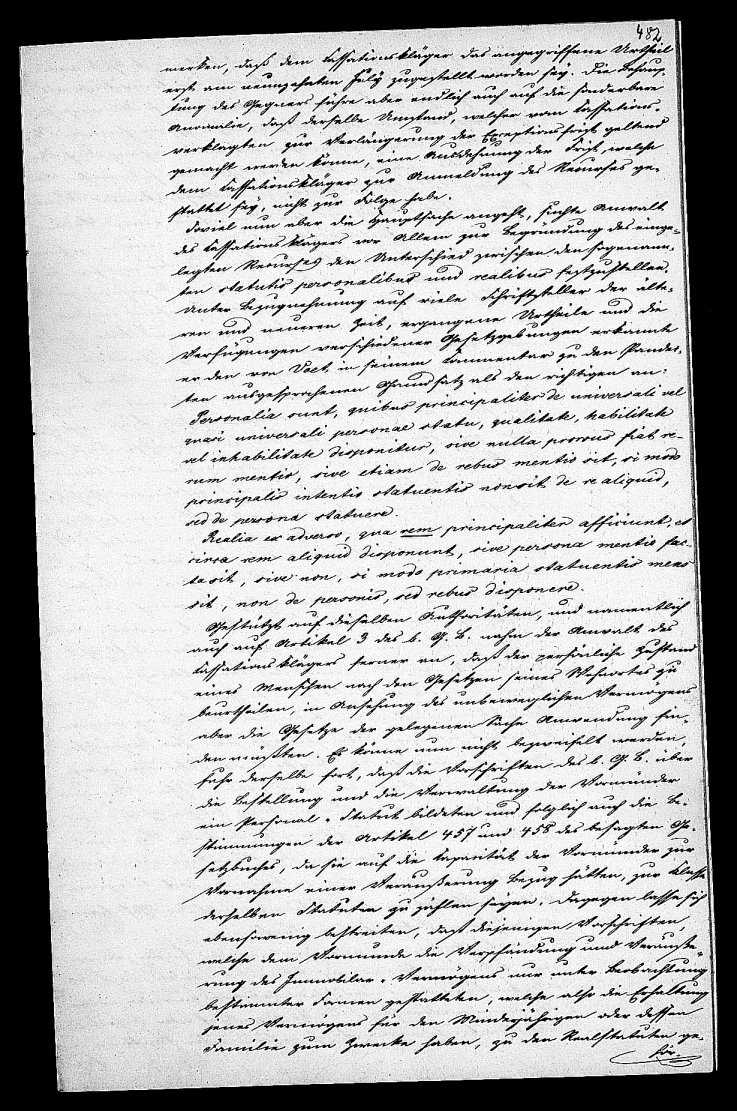 482
merken, daß dem Cassationskläger das angegriffene Urtheil
erst am neunzehnten July zugestellt worden sey. Die Behaup-
tung des Gegners führe aber endlich auch auf die sonderbare
Anomalie, daß derselbe Umstand, welcher vom Cassations-
verklagten zur Verlängerung der Exceptionsfrist geltend
gemacht werden könne, eine Ausdehnung der Frist, welche
dem Cassationskläger zur Anmeldung des Recurses ge-
stattet sey, nicht zur Folge habe.
Soviel nun aber die Hauptsache angeht, suchte Anwalt
des Cassationsklägers vor Allem zur Begründung des einge-
legten Recurses den Unterschied zwischen den sogenann-
ten statutis personalibus und realibus festzustellen.
Unter Bezugnehmung auf viele Schriftsteller der älte-
ren und neueren Zeit, ergangene Urtheile und die
Verfügungen verschiedener Gesetzgebungen erkannte
er den von Voet in seinem Commentar zu den Pandec-
ten ausgesprochenen Grundsatz als den richtigen an:
Personalia sunt, quibus principaliter de universali vel
quasi universali personae statu, qualitate, habilitate
vel inhabilitate disponitur, sive nulla prorsus fiat re-
rum mentio, sive etiam de rebus mentio sit, si modo
principalis intentio statuentis non sit de re aliquid,
sed de persona statuere.
Realia ex adverso, qua rem principaliter afficiunt, et
circa rem aliquid disponunt, sive persona mentio fac-
ta sit, sive non, si modo primaria statuentis mens
sit, non de personis, sed rebus disponere.
Gestützt auf dieselben Authoritäten, und namentlich
auch auf Artikel 3 des b. G. B. nahm der Anwalt des
Cassationsklägers ferner an, daß der persönliche Zustand
eines Menschen nach den Gesetzen seines Wohnortes zu
beurtheilen, in Ansehung des unbeweglichen Vermögens
aber die Gesetze der gelegenen Sache Anwendung fin-
den müßten. Es könne nun nicht bezweifelt werden,
fuhr derselbe fort, daß die Vorschriften des b. G. B. über
die Bestellung und die Verwaltung der Vormünder
ein Personal-Statut bildeten und folglich auch die Be-
stimmungen der Artikel 457 und 458 des besagten Ge-
setzbuches, da sie auf die Capacität der Vormünder zur
Vornahme einer Veräußerung Bezug hätten, zur Klasse
derselben Statuten zu zählen seyen. Dagegen lasse sich
ebensowenig bestreiten, daß diejenigen Vorschriften,
welche dem Vormunde die Verpfändung und Veräuße-
rung des Immobilar-Vermögens nur unter Beobachtung
bestimmter Formen gestatteten, welche also die Erhaltung
jenes Vermögens für den Minderjährigen oder dessen
Familie zum Zwecke haben, zu den Realstatuten ge-
hör.